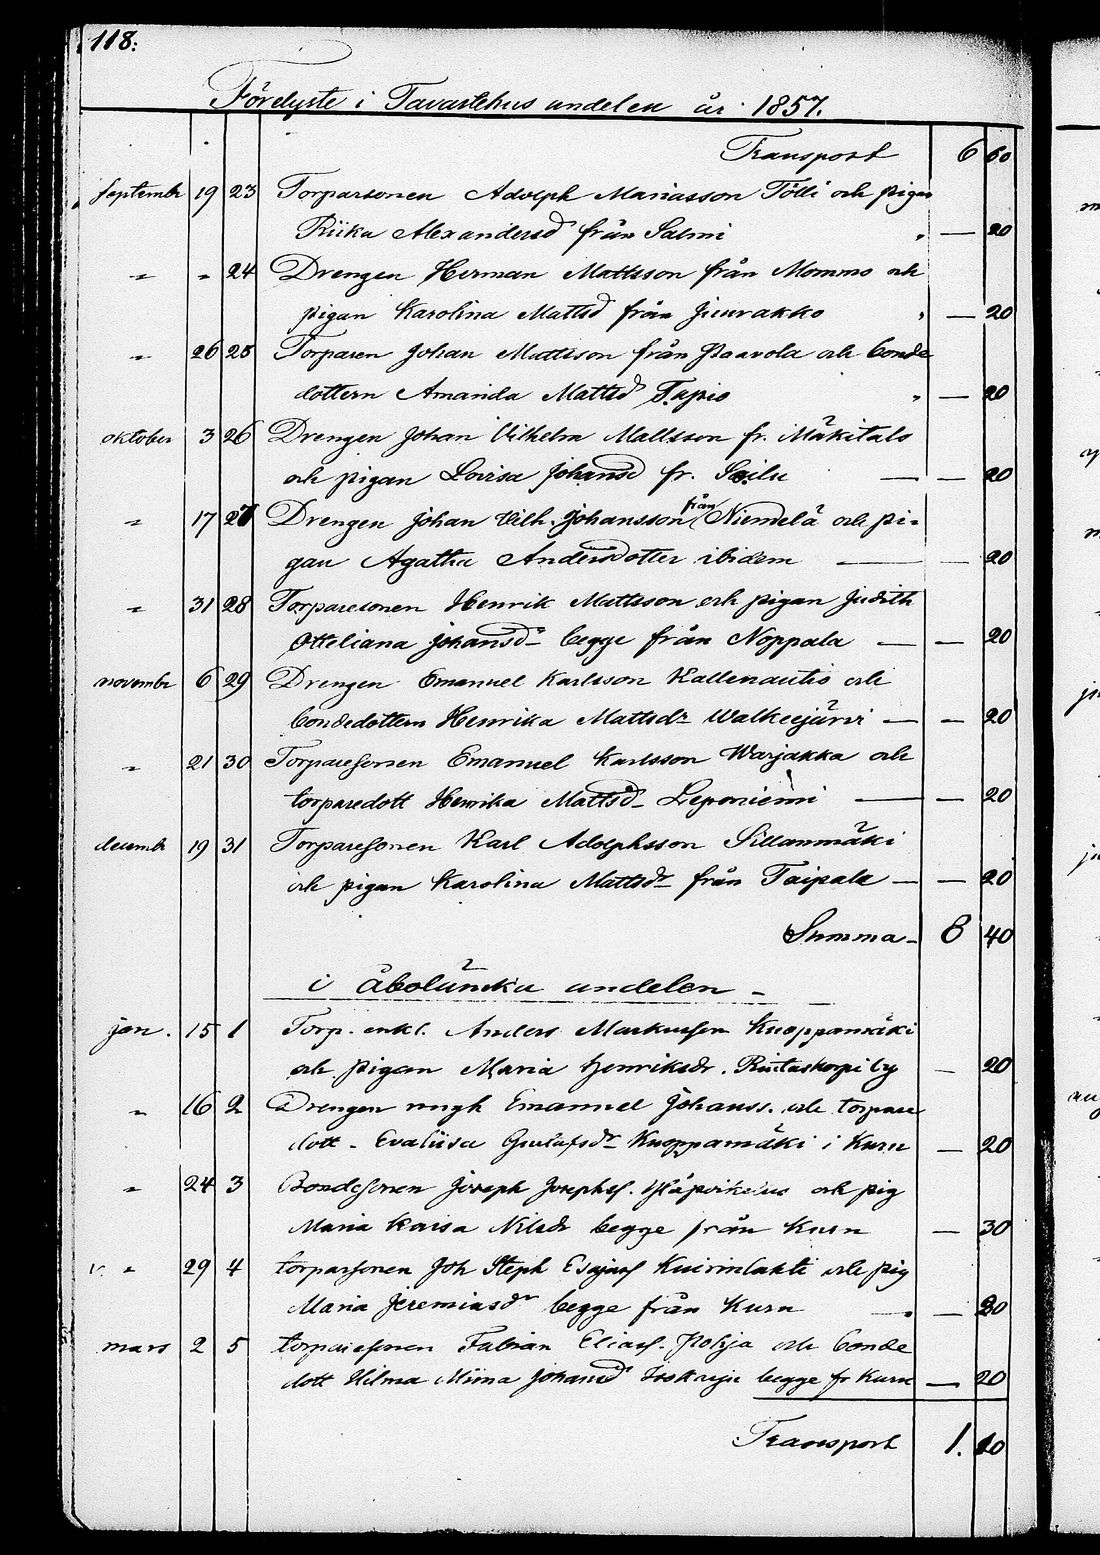 118:
Förelyste i Tavastehus andelen år 1857.
Transport 6 60
September 19 23 Torparsonen Adolph Mariasson Tölli och pigan
Riika Alexandersd från Salmi " — 20
" " 24 Drengen Herman Mattsson från Mommo och
pigan Karolina Mattsd från Juurakko " — 20
" 26 25 Torparen Johan Mattsson från Paavola och bonde
dottern Amanda Mattsd Tapio " — 20
oktober 3 26 Drengen Johan Vilhelm Mattsson fr. Mäkitalo
och pigan Lovisa Johansd fr. — — 20
" 17 27 Drengen Johan Vilh. Johansson från Niemelä och pi-
gan Agatha Andersdotter ibidem — — 20
" 31 28 Torparesonen Henrik Mattsson och pigan Judith
Otteliana Johansdr begge från Noppala — — 20
novembr 6 29 Drengen Emanuel Karlsson Kallenautio och
bondedottern Henrika Mattsdr Walkeejärvi — — 20
" 21 30 Torparesonen Emanuel Karlsson Warjakka och
torparedott Henrika Mattsd Leponiemi — — 20
decembr 19 31 Torparesonen Karl Adolphsson Sillanmäki
och pigan Karolina Mattsdr från Taipale — — 20
Summa 8 40
i åboländska andelen
jan. 15 1 Torp. enkl. Anders Markusson Knoppamäki
och pigan Maria Henriksdr. by — 20
" 16 2 Drengen Emanuel Johanss. och torpare
dott. Evaliisa Gustafsdr Knoppamäki i Kuru — 20
" 24 3 Bondesonen Joseph Josephs. och pig
Maria Kaisa Nilsdr begge från Kuru — 30
" 29 4 torparsonen Joh Steph Esajass Kuivinlahti och pig
Maria Jeremiasdr begge från Kuru — 20
mars 2 5 torparesonen Fabian Eliass. Pohja och bonde
dott Hilma Miina Johansd begge fr Kuru — 20
Transport 1. 10